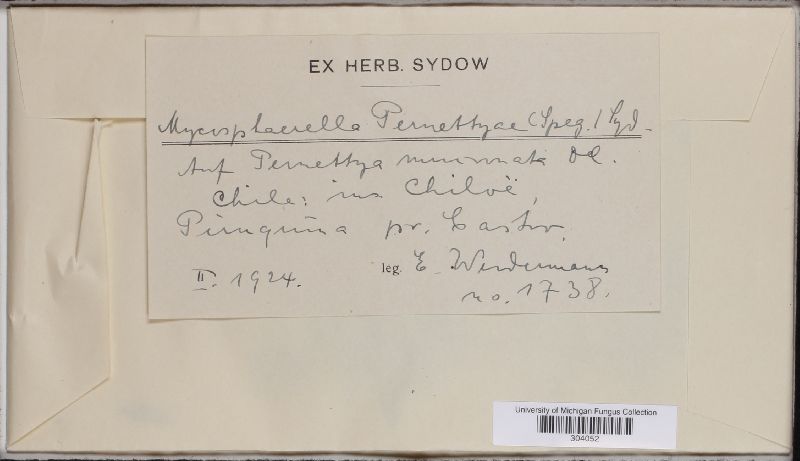 EX HERB. SYDOW
Mycosphaerella Pernettyae (Speg.) Syd.
Auf Pernettya mucronata
Chile: ins Chiloë,
Piruquina pr. Castro.
II. 1924. leg. E. Werdermann
no. 1738.
University of Michigan Fungus Collection
304052